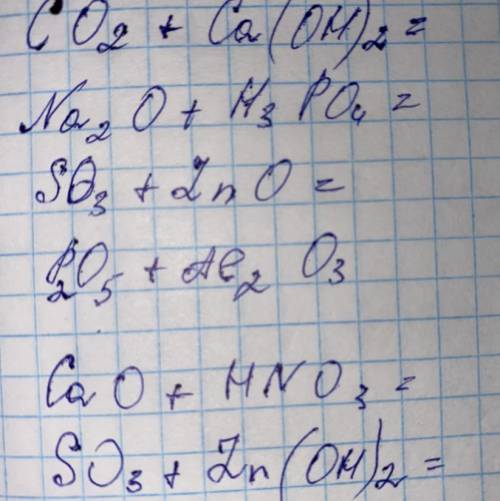 CO2 + Ca(OH)2 =
Na2O + H3PO4 =
SO3 + ZnO =
P2O5 + Al2O3
CaO + HNO3 =
SO3 + Zn(OH)2 =